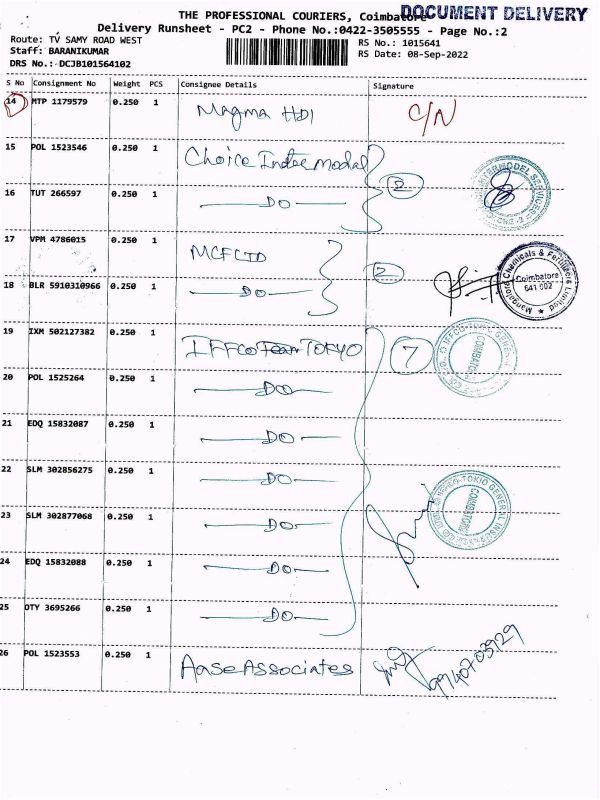 DOCUMENT DELIVERY
THE PROFESSIONAL COURIERS, Coimbatore
Delivery Runsheet - PC2 - Phone No.:0422-3505555 - Page No.:2
Route: TV SAMY ROAD WEST
Staff: BARANIKUMAR
DRS No.: DCJB101564102
RS No.: 1015641
RS Date: 08-Sep-2022
S No Consignment No Weight PCS Consignee Details Signature
14 MTP 1179579 0.250 1 Magma HDI C/N
15 POL 1523546 0.250 1 Choice Inter Modal 2
16 TUT 266597 0.250 1 DO
17 VPM 4786015 0.250 1 MCFLTD 2
18 BLR 5910310966 0.250 1 DO
Mangalore Chemicals & Fertilizers Limited
Coimbatore
641 002
19 IXM 502127382 0.250 1 IFFCO TOKYO 7
COIMBATORE
20 POL 1525264 0.250 1 DO
21 EDQ 15832087 0.250 1 DO
22 SLM 302856275 0.250 1 DO
23 SLM 302877068 0.250 1 DO
COIMBATORE
24 EDQ 15832088 0.250 1 DO
25 OTY 3695266 0.250 1 DO
26 POL 1523553 0.250 1 Aase Associates
9940703929